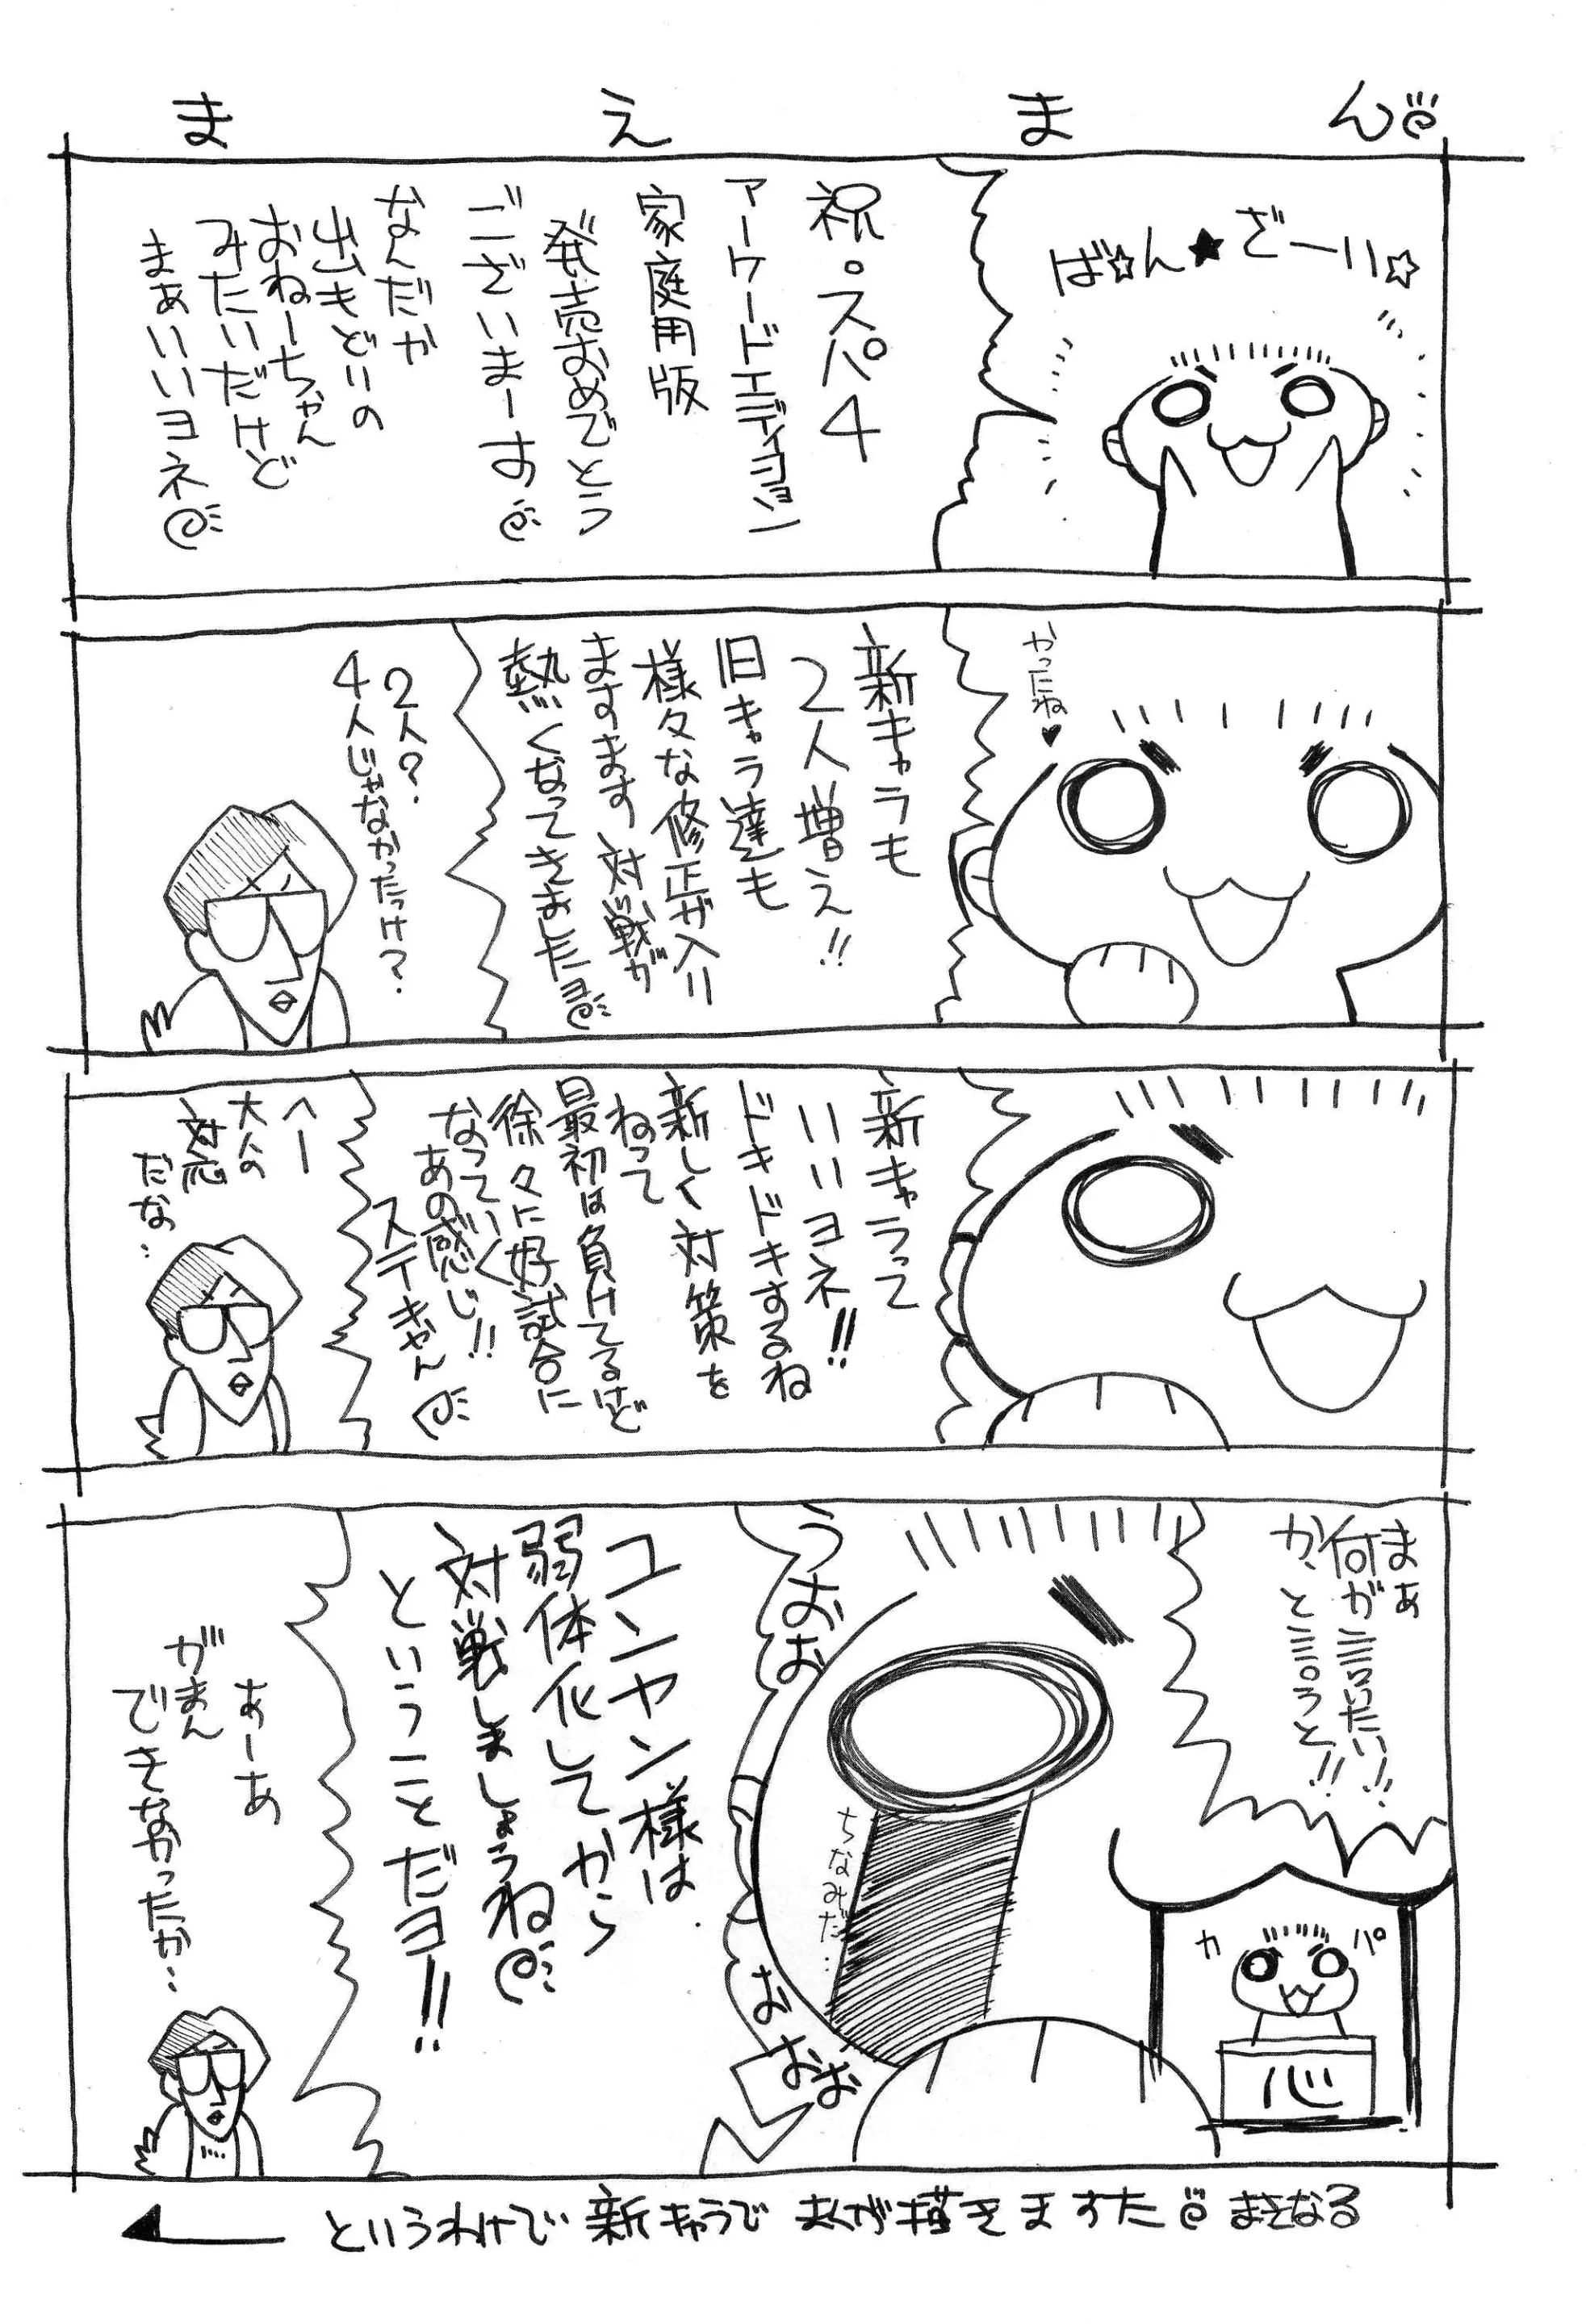 まえまん
ば☆ん★ざーい☆
祝。スパ4
アーケードエディション
家庭用版
発売おめでとう
ございまーす
なんだか
出もどりの
おねーちゃん
みたいだけど
まぁいいヨネ
かったね♥
新キャラも
2人増え!!
旧キャラ達も
様々な修正が入り
ますます対戦が
熱くなってきましたヨ
2人?
4人じゃなかったっけ?
新キャラって
いいヨネ!!
ドキドキするね
新しく対策を
ねって
最初は負けてるけど
徐々に好試合に
なっていく
あの感じ!!
ステキやん
へー
大人の
対応
だな…
まぁ
何が言いたい!!
か、と言うと!!
カパ
心
うおお
おおお
ちなみだ…
ユンヤン様は
弱体化してから
対戦しましょうね
ということだヨ!!
あーあ
がまん
できなかったか…
というわけで新キャラでまんが描きますた まさなる